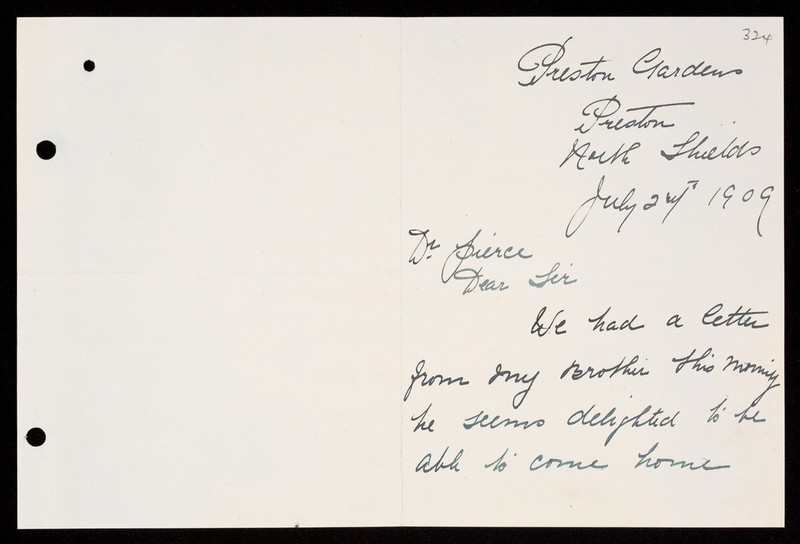 324
Preston Gardens
Preston
North Shields
July 24th 1909
Dr Pierce
Dear Sir
We had a letter
from my Brother this morning
he seems delighted to be
able to come home